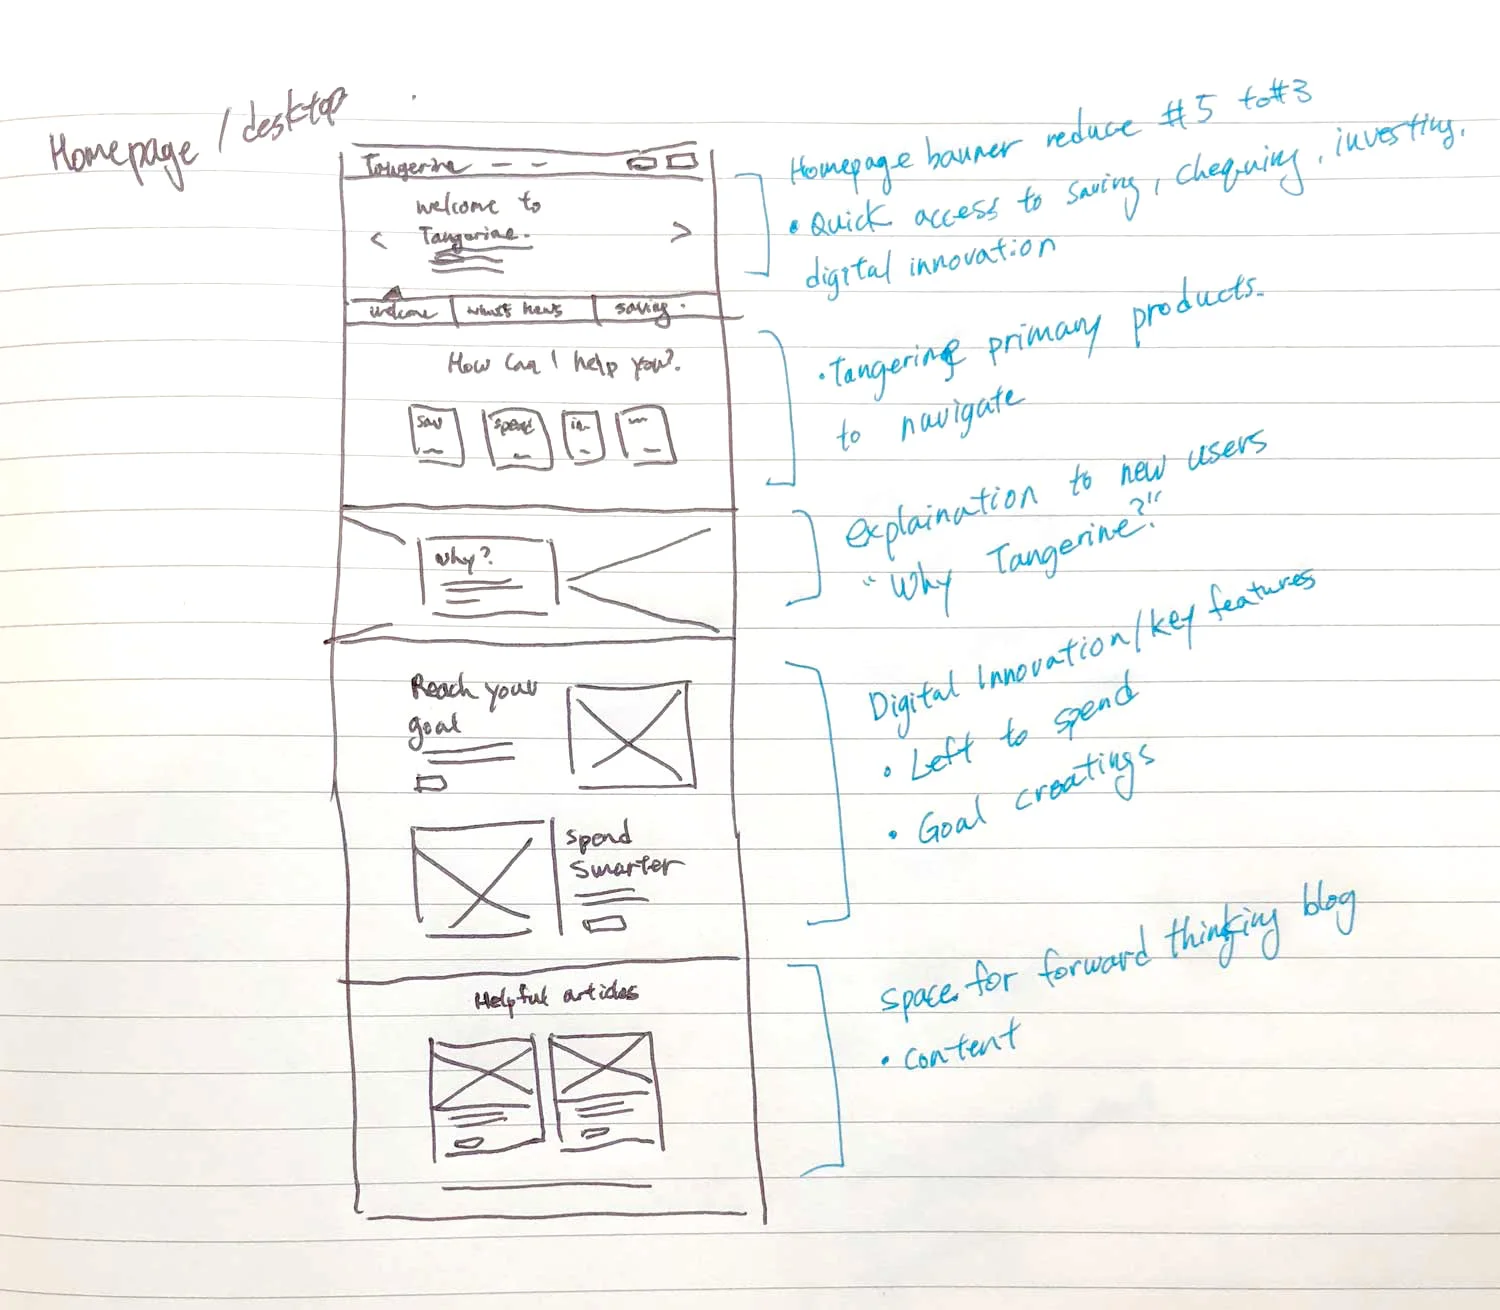 Homepage / desktop
Tangerine
welcome to
Tangerine.
welcome
what's news
saving.
How can I help you?.
sav
spend
in
Why?
Reach your
goal
Spend
Smarter
Helpful articles
Homepage banner reduce #5 to #3
• Quick access to saving, chequing, investing.
digital innovation
• Tangerine primary products.
to navigate
explaination to new users
"Why Tangerine?"
Digital Innovation/key features
• Left to spend
• Goal creatings
Space for forward thinking blog
• content